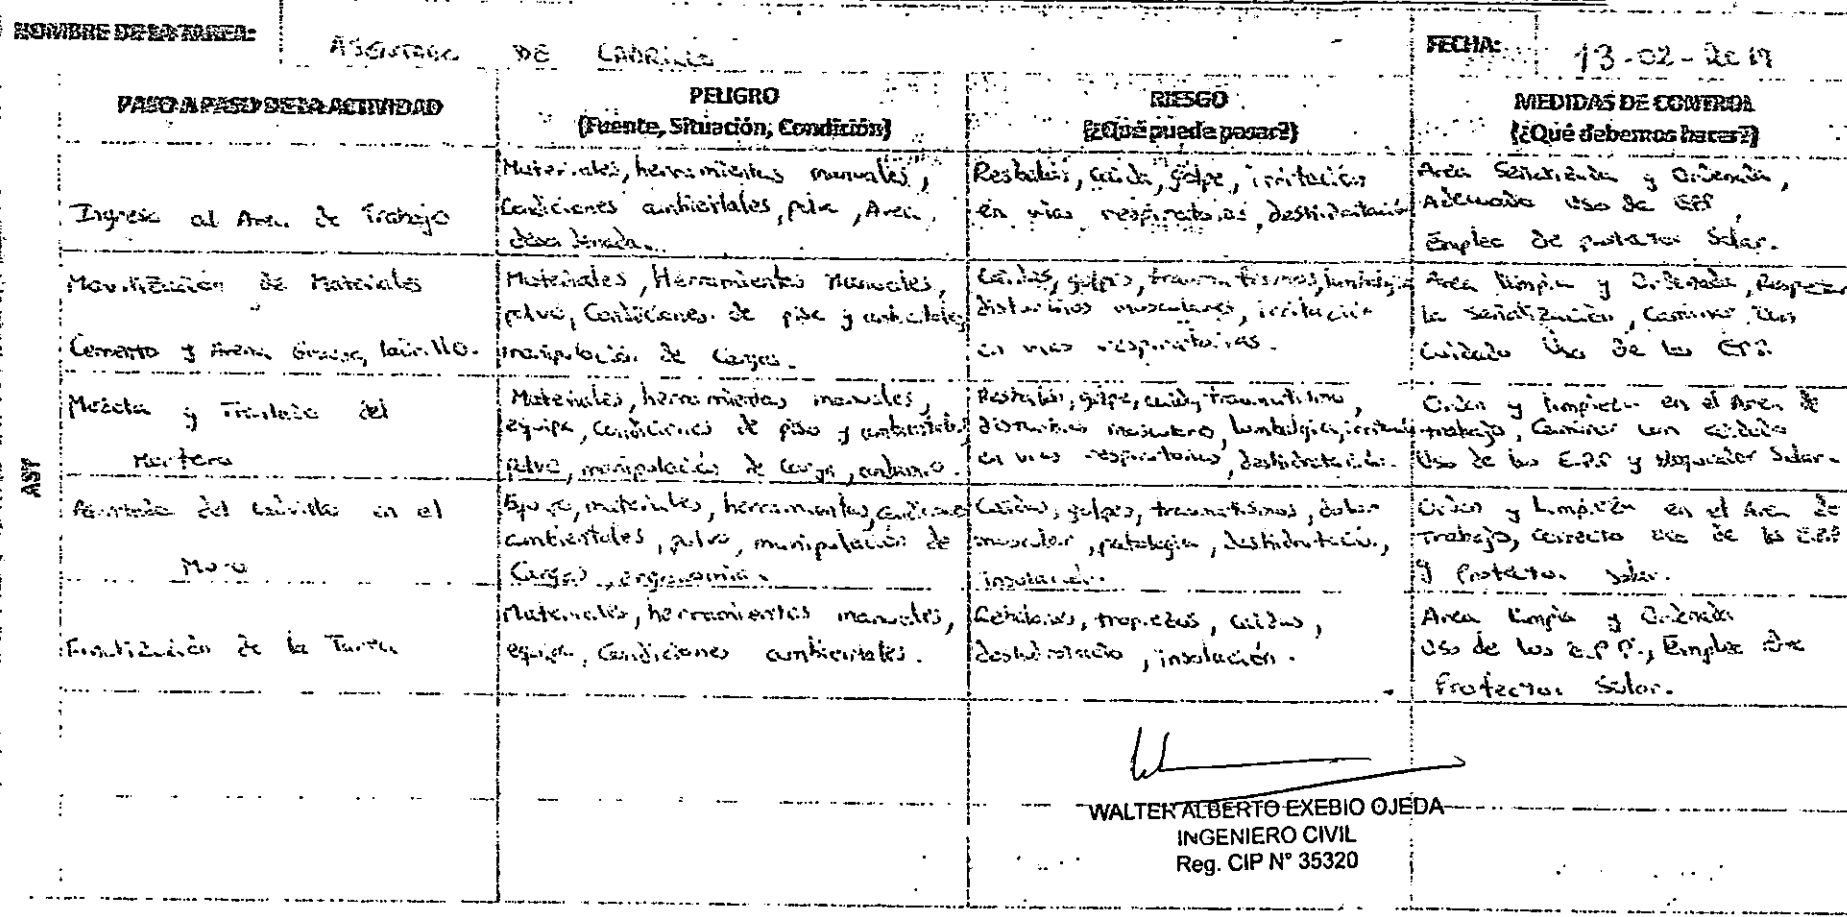 NOMBRE DE LA TAREA: ASENTADO DE LADRILLO
FECHA: 13-02-2019
PASO A PASO DE LA ACTIVIDAD
PELIGRO
(Fuente, Situación, Condición)
RIESGO
(¿Qué puede pasar?)
MEDIDAS DE CONTROL
(¿Qué debemos hacer?)
AST
Ingreso al Area de Trabajo
Materiales, herramientas manuales,
Condiciones ambientales, polvo, Area
desordenada.
Resbalos, caida, golpe, irritacion
en vias respiratorias, deshidratación
Area Señalizada y Ordenada,
Adecuado uso de EPP,
Empleo de protector Solar.
Movilización de Materiales
Cemento y Arena Gruesa, ladrillo.
Materiales, Herramientas Manuales,
polvo, Condiciones de piso y ambientales
manipulación de Cargas.
Caidas, golpes, traumatismos, lumbalgia
disturbios musculares, irritación
en vias respiratorias.
Area limpia y Ordenada, Respetar
la señalización, Caminar con
Cuidado Uso de los EPP.
Mezcla y Traslado del
Mortero
Materiales, herramientas manuales,
equipo, condiciones de piso y ambientales
polvo, manipulación de carga,
Resbalos, golpe, caida, traumatismo,
disturbios musculares, lumbalgia, irritación
en vias respiratorias, deshidratación.
Orden y limpieza en el Area de
trabajo, Caminar con cuidado
Uso de los E.P.P y bloqueador Solar.
Asentado del ladrillo en el
Muro
Equipo, materiales, herramientas, condiciones
ambientales, polvo, manipulación de
Cargas, ergonomia.
Caidas, golpes, traumatismos, dolor
muscular, patologia, deshidratación,
insolación.
Orden y limpieza en el Area de
Trabajo, correcto uso de los E.P.P
y Protector solar.
Finalización de la Tarea
Materiales, herramientas manuales,
equipo, Condiciones ambientales.
tropiezos, caidas,
insolación.
Area limpia y Ordenada
Uso de los E.P.P., Emplear
Protector Solar.
WALTER ALBERTO EXEBIO OJEDA
INGENIERO CIVIL
Reg. CIP N° 35320